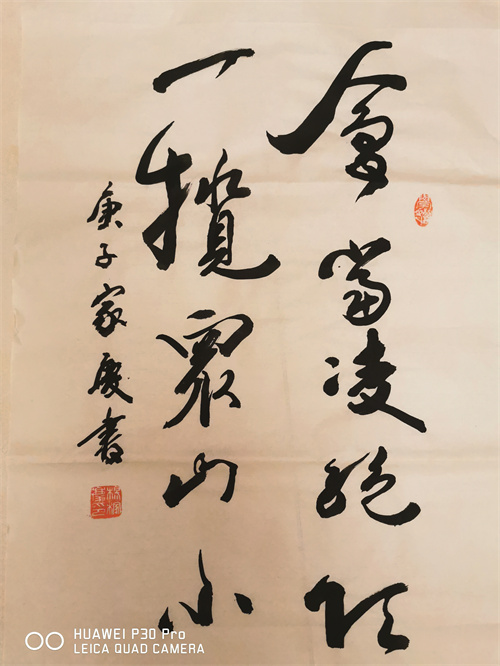 會當凌絶頂
一攬眾山小
庚子家殷書
HUAWEI P30 Pro
LEICA QUAD CAMERA